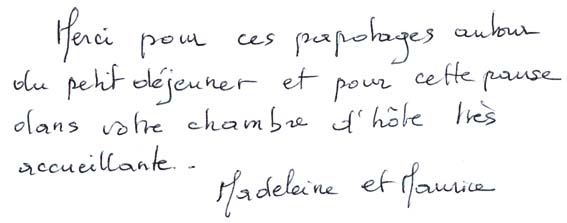 Merci pour ces papotages autour
du petit déjeuner et pour cette pause
dans votre chambre d'hôte très
accueillante..
Madeleine et Maurice